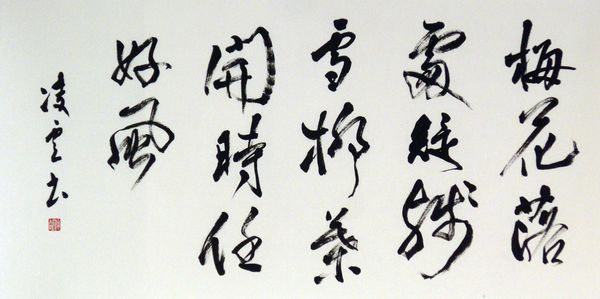 梅花落
處疑殘
雪柳葉
開時任
好風
凌雲書